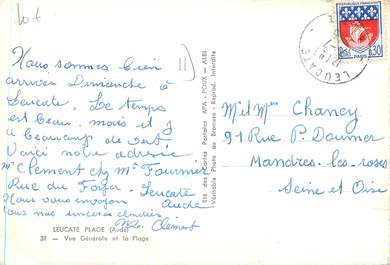 lot
11
Nous sommes bien
arrivés Dimanche à
Leucate, Le temps
est beau. mais il y
a beaucoup de vent
Voici notre adresse.
Mr Clement chez Mr Fournier
Rue du Foyer. Leucate
Aude
Nous vous envoyons
tous nos sincères amitiés
Mme Clément
LEUCATE PLAGE (Aude)
39 - Vue Générale et la Plage
Sté des Cartes Postales APA - POUX - ALBI
Véritable Photo au Bromure - Reprod. Interdite
REPUBLIQUE FRANÇAISE
0,30
PARIS
LEUCATE
M et Mme Chancy
91 Rue P. Doumer
Mandres-les-roses
Seine et Oise